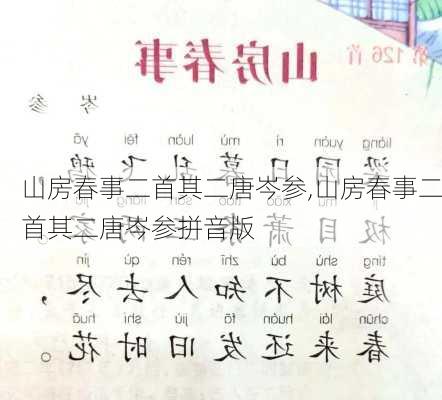 第126首
山房春事
岑参
liáng yuán rì mù luàn fēi yā
梁园日暮乱飞鸦
山房春事二首其二唐岑参,山房春事二
首其二唐岑参拼音版
极目萧 家
tíng shù bù zhī rén qù jìn
庭树不知人去尽，
chūn lái huán fā jiù shí huā
春来还发旧时花。